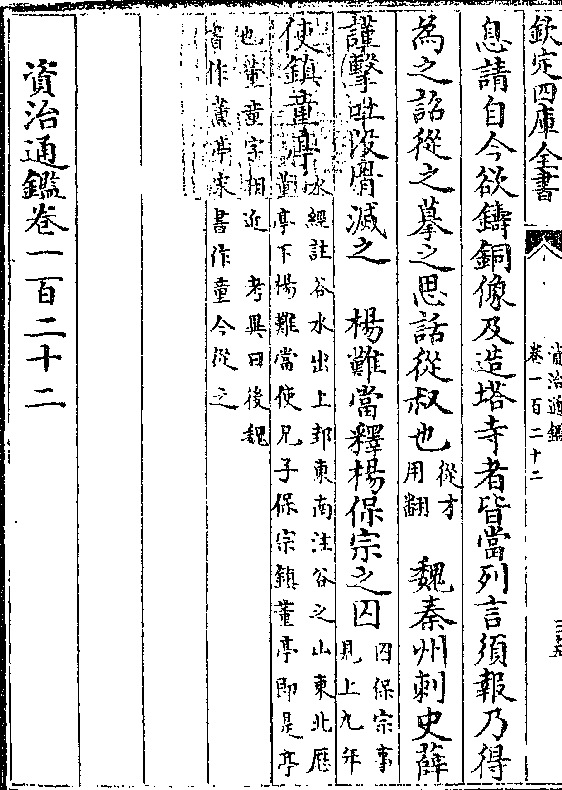 欽定四庫全書
資治通鑑
卷一百二十二
息請自今欲鑄銅像及造塔寺者皆當列言須報乃得
為之詔從之摹之思話從叔也
從才
用翻
魏秦州刺史薛
謹擊吐没骨滅之 楊難當釋楊保宗之囚
囚保宗事
見上九年
使鎮童亭
水經註谷水出上邽東南注谷之山東北歷
董亭下楊難當使兄子保宗鎮董亭即是亭
也董童字相近 考異曰後魏
書作董亭宋書作童今從之
資治通鑑卷一百二十二